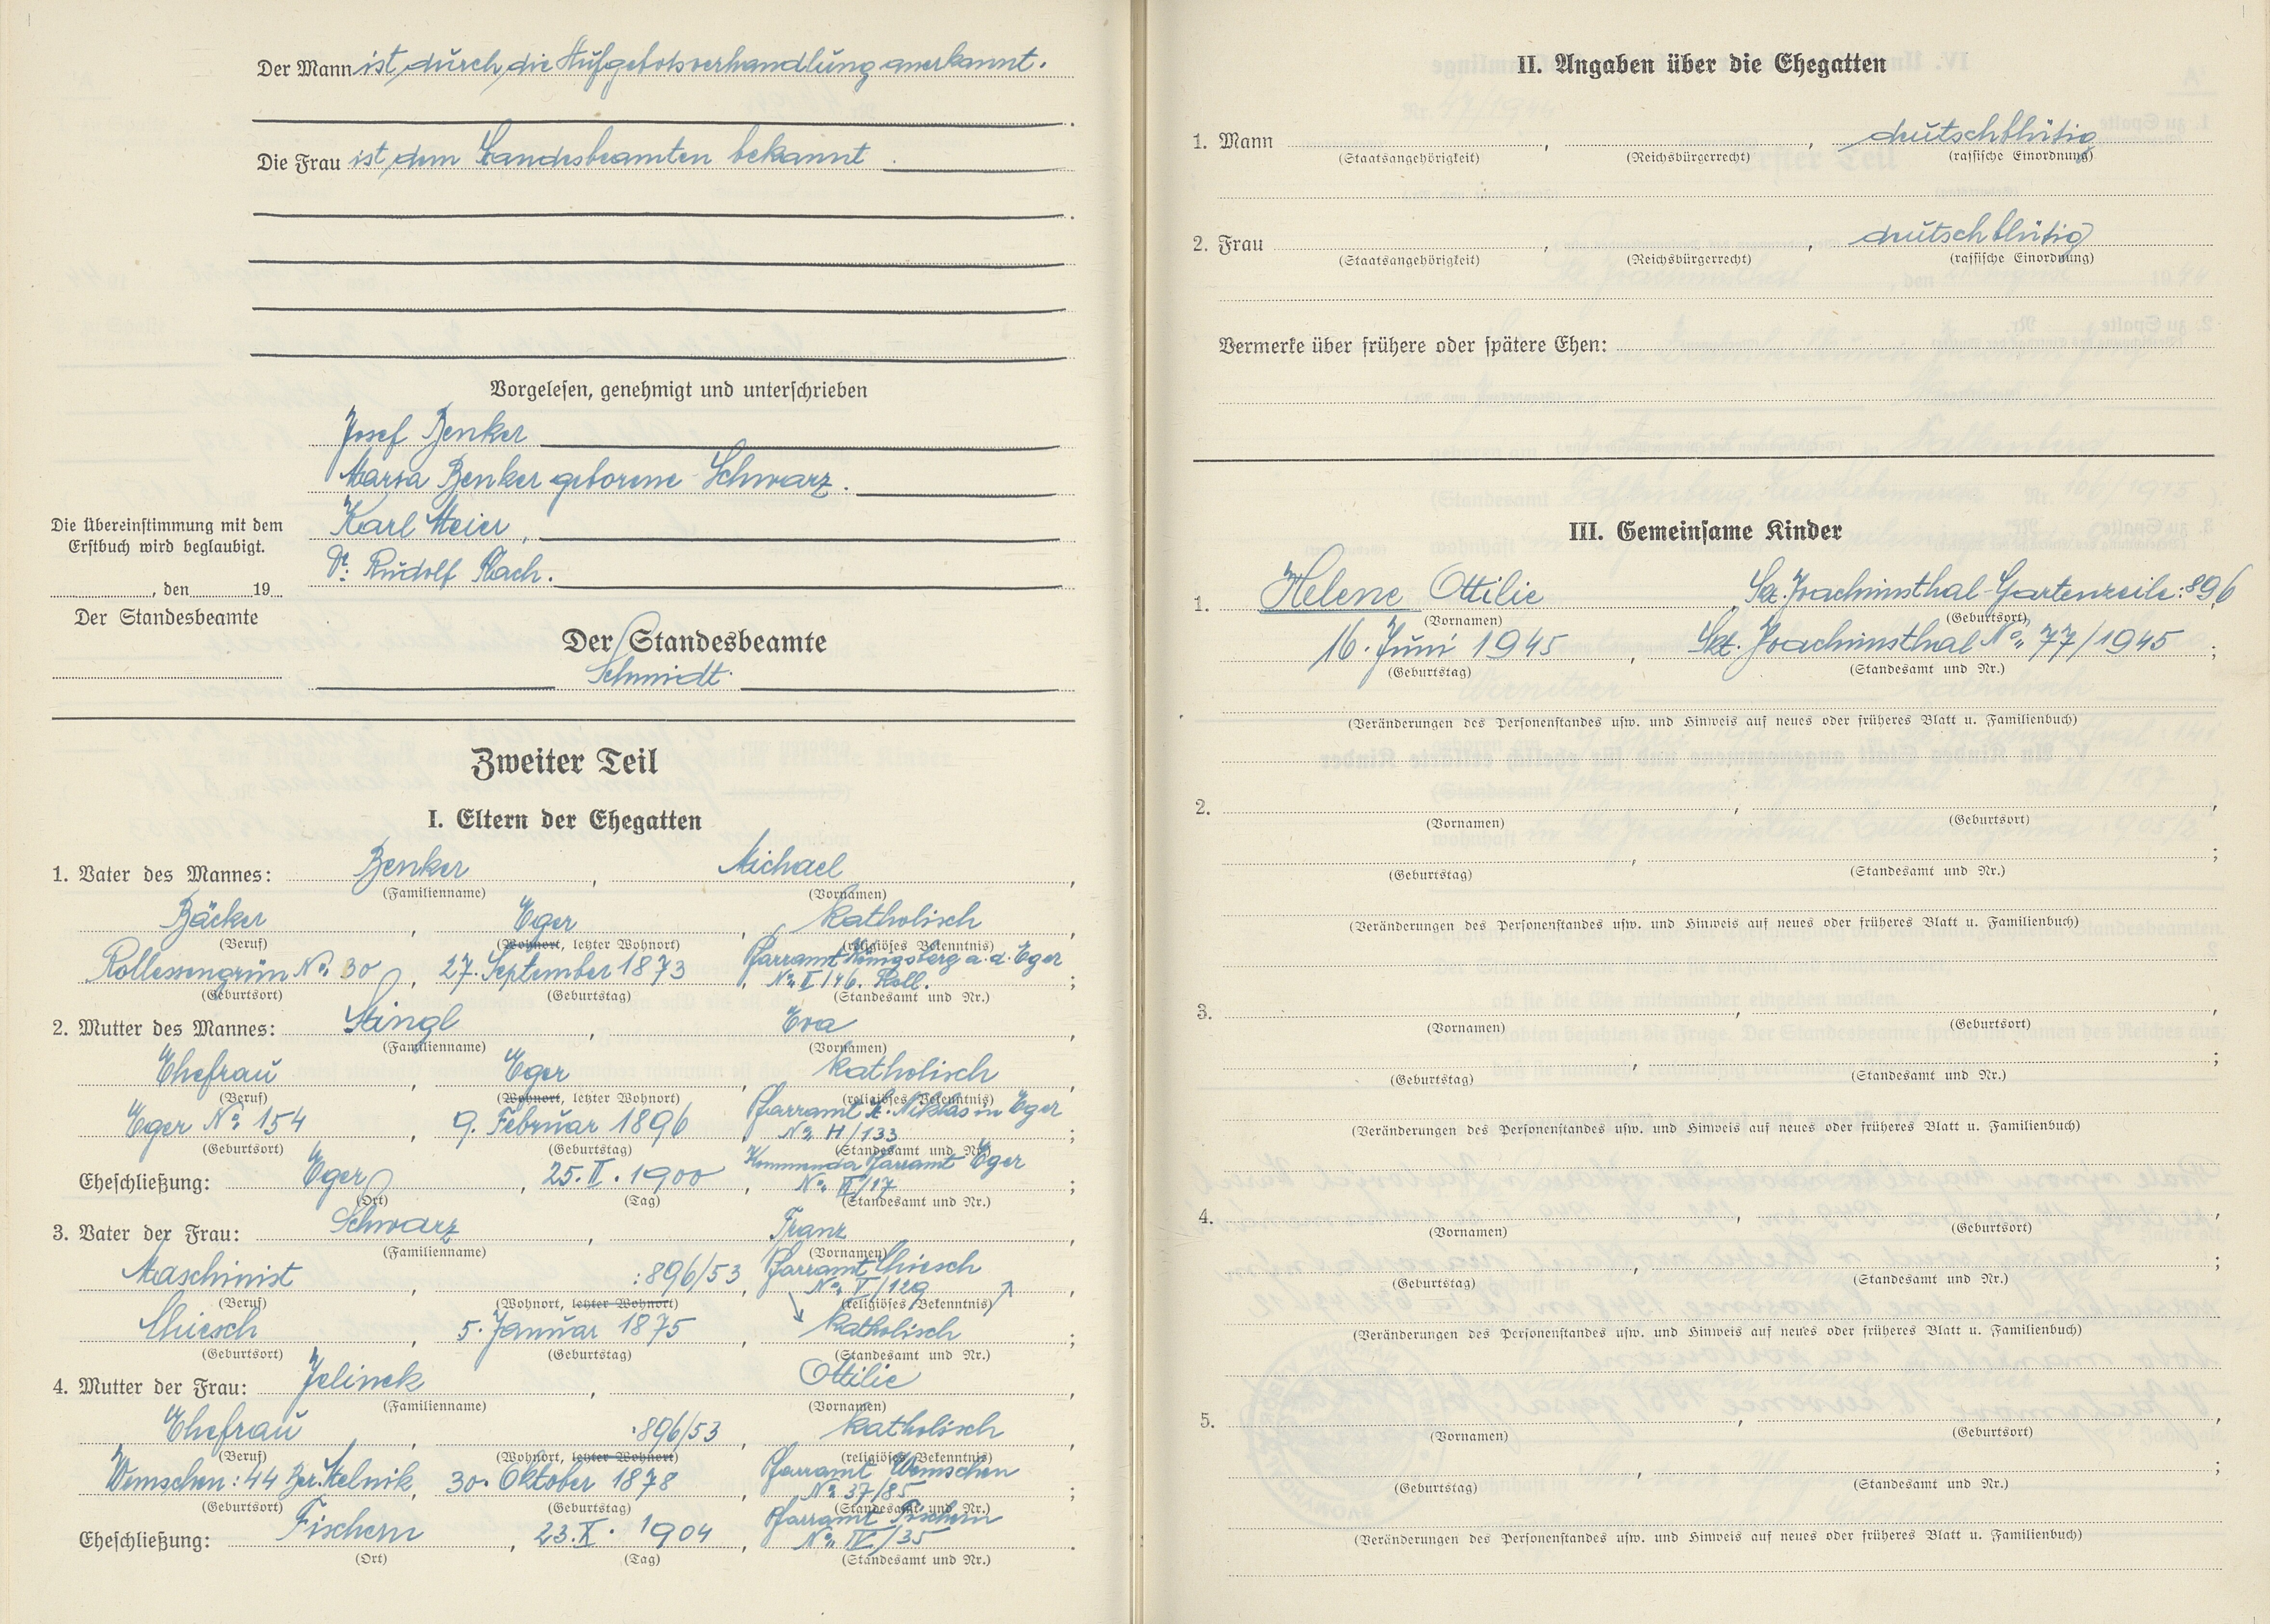 Der Mann ist durch die Aufgebotsverhandlung anerkannt.
Die Frau ist dem Standesbeamten bekannt.
Vorgelesen, genehmigt und unterschrieben
Josef Benker
Maria Benker geborene Schwarz.
Karl Meier,
Dr. Rudolf Flach.
Die Übereinstimmung mit dem
Erstbuch wird beglaubigt.
, den 19
Der Standesbeamte
Der Standesbeamte
Schmidt.
Zweiter Teil
I. Eltern der Ehegatten
1. Vater des Mannes: Benker, Michael,
(Familienname) (Vornamen)
Bäcker, Eger, katholisch,
(Beruf) (Wohnort, letzter Wohnort) (religiöses Bekenntnis)
Rollessengrün No. 30, 27. September 1873, Pfarramt Königsberg a. d. Eger
No. I/46. Roll. ;
(Geburtsort) (Geburtstag) (Standesamt und Nr.)
2. Mutter des Mannes: Stingl, Eva,
(Familienname) (Vornamen)
Ehefrau, Eger, katholisch,
(Beruf) (Wohnort, letzter Wohnort) (religiöses Bekenntnis)
Eger No. 154, 9. Februar 1896, Pfarramt St. Niklas in Eger
No. H/133 ;
(Geburtsort) (Geburtstag) (Standesamt und Nr.)
Eheschließung: Eger, 25. II. 1900, Kommenda Pfarramt Eger
No. /17 ;
(Ort) (Tag) (Standesamt und Nr.)
3. Vater der Frau: Schwarz, Franz,
(Familienname) (Vornamen)
Maschinist, :896/53, Pfarramt Chiesch
No. V/129,
(Beruf) (Wohnort, letzter Wohnort) (religiöses Bekenntnis)
Chiesch, 5. Januar 1875, katholisch ;
(Geburtsort) (Geburtstag) (Standesamt und Nr.)
4. Mutter der Frau: Jelinek, Ottilie,
(Familienname) (Vornamen)
Ehefrau, :896/53, katholisch,
(Beruf) (Wohnort, letzter Wohnort) (religiöses Bekenntnis)
Wemschen: 44 Bez. Melnik, 30. Oktober 1878, Pfarramt Wemschen
No. 37/85 ;
(Geburtsort) (Geburtstag) (Standesamt und Nr.)
Eheschließung: Fischern, 23. X. 1904, Pfarramt Fischern
No. IV/35.
(Ort) (Tag) (Standesamt und Nr.)
II. Angaben über die Ehegatten
1. Mann , , deutschblütig
(Staatsangehörigkeit) (Reichsbürgerrecht) (rassische Einordnung)
2. Frau , , deutschblütig
(Staatsangehörigkeit) (Reichsbürgerrecht) (rassische Einordnung)
Vermerke über frühere oder spätere Ehen:
III. Gemeinsame Kinder
1. Helene Ottilie, Skt. Joachimsthal-Gartenzeile:896
(Vornamen) (Geburtsort)
16. Juni 1945, Skt. Joachimsthal No. 77/1945 ;
(Geburtstag) (Standesamt und Nr.)
(Veränderungen des Personenstandes usw. und Hinweis auf neues oder früheres Blatt u. Familienbuch)
2. , ,
(Vornamen) (Geburtsort)
, ;
(Geburtstag) (Standesamt und Nr.)
(Veränderungen des Personenstandes usw. und Hinweis auf neues oder früheres Blatt u. Familienbuch)
3. , ,
(Vornamen) (Geburtsort)
, ;
(Geburtstag) (Standesamt und Nr.)
(Veränderungen des Personenstandes usw. und Hinweis auf neues oder früheres Blatt u. Familienbuch)
4. , ,
(Vornamen) (Geburtsort)
, ;
(Geburtstag) (Standesamt und Nr.)
(Veränderungen des Personenstandes usw. und Hinweis auf neues oder früheres Blatt u. Familienbuch)
5. , ,
(Vornamen) (Geburtsort)
, ;
(Geburtstag) (Standesamt und Nr.)
(Veränderungen des Personenstandes usw. und Hinweis auf neues oder früheres Blatt u. Familienbuch)